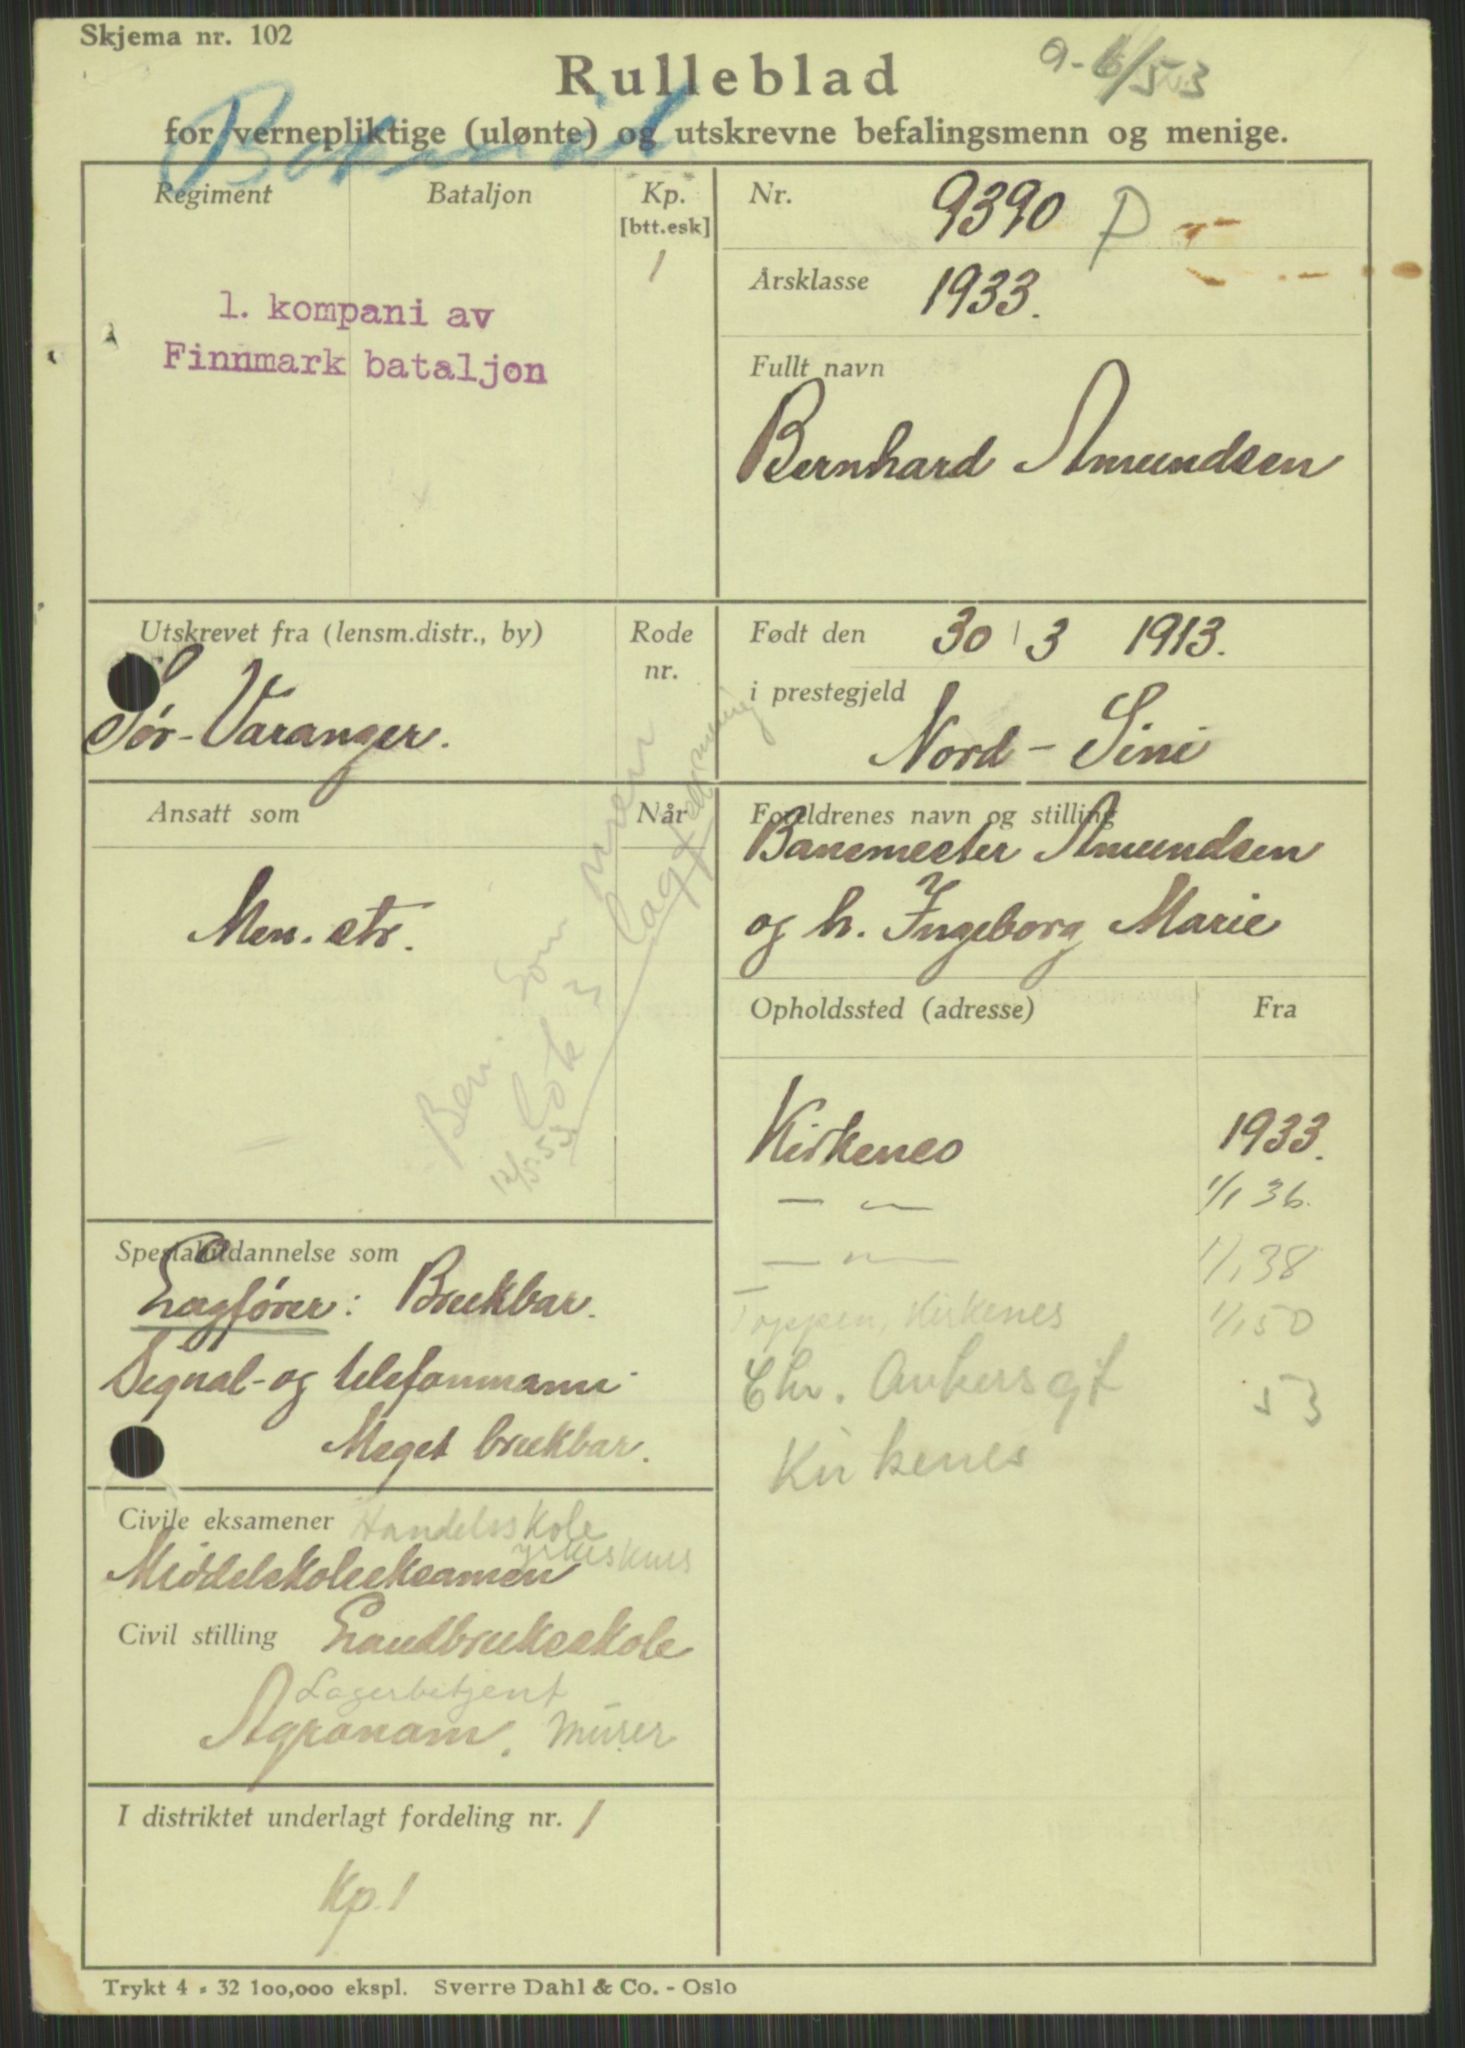 Skjema nr. 102
9-6/53
Rulleblad
for vernepliktige (ulønte) og utskrevne befalingsmenn og menige.
Regiment Bataljon Kp. [btt.esk]
1
1. kompani av
Finnmark bataljon
Nr. 9390 P
Årsklasse 1933.
Fullt navn
Bernhard Amundsen
Utskrevet fra (lensm.distr., by) Rode nr.
Sør-Varanger.
Født den 30/3 1913.
i prestegjeld
Nord-
Ansatt som Når
Men. str.
Foreldrenes navn og stilling
Banemester Amundsen
og h. Ingeborg Marie
Ber. som
lok
12/5.53
Opholdssted (adresse) Fra
Kirkenes 1933.
— " — 1/1 36.
— " — 1/1 38
Toppen, Kirkenes 1/1 50
Chr. Ankersgt 53
Kirkenes
Spesialutdannelse som
Lagfører: Brukbar.
Signal- og telefonmann:
Meget brukbar.
Civile eksamener Handelsskole
yrkeskurs
Middelskoleeksamen
Civil stilling Landbruksskole
Lagerbetjent
Agronom. Murer
I distriktet underlagt fordeling nr. 1
Kp. 1
Trykt 4 - 32 100,000 ekspl. Sverre Dahl & Co. - Oslo